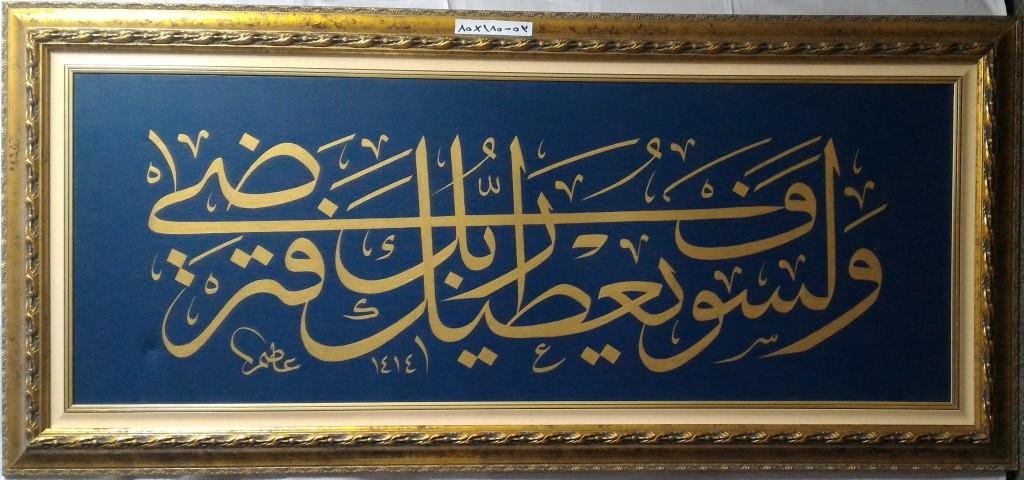 ٨٥×١٨٥-٥٢
وَلَسَوْفَ يُعْطِيكَ رَبُّكَ فَتَرْضَىٰ
١٤١٤